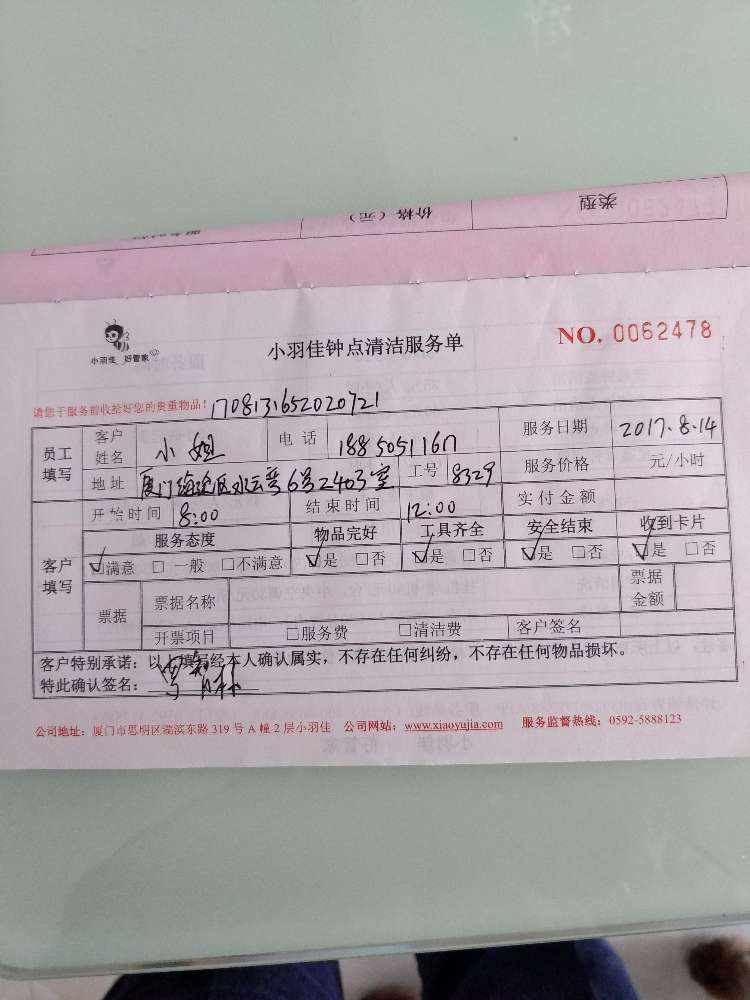 类型
价格（元）
小羽佳 好管家
小羽佳钟点清洁服务单
NO. 0062478
请您于服务前收拾好您的贵重物品！ 170813165202072​1
员工填写 客户姓名 小姐 电话 服务日期 2017.8.14
地址 厦门海沧区水云湾6号2403室 工号 8329 服务价格 元/小时
开始时间 8:00 结束时间 12:00 实付金额
客户填写 服务态度 物品完好 工具齐全 安全结束 收到卡片
☑满意 □一般 □不满意 ☑是 □否 ☑是 □否 ☑是 □否 ☑是 □否
票据 票据名称 票据金额
开票项目 □服务费 □清洁费 客户签名
客户特别承诺：以上填写经本人确认属实，不存在任何纠纷，不存在任何物品损坏。
特此确认签名：
公司地址：厦门市思明区湖滨东路 319 号 A 幢 2 层小羽佳 公司网站：www.xiaoyujia.com 服务监督热线：0592-5888123